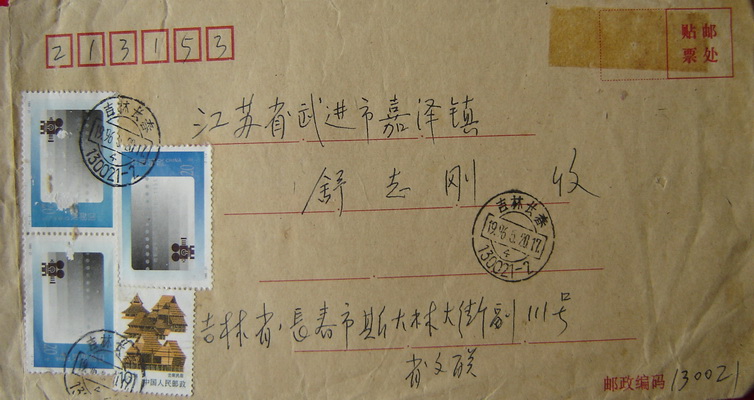 213153
贴邮
票处
江苏省武进市嘉泽镇
舒志刚 收
吉林长春
1996.5.28.17
4
130021-2
吉林长春
1996.5.28.17
4
130021-2
20
中国人民邮政
吉林省·长春市斯大林大街副111号
省文联
邮政编码 130021